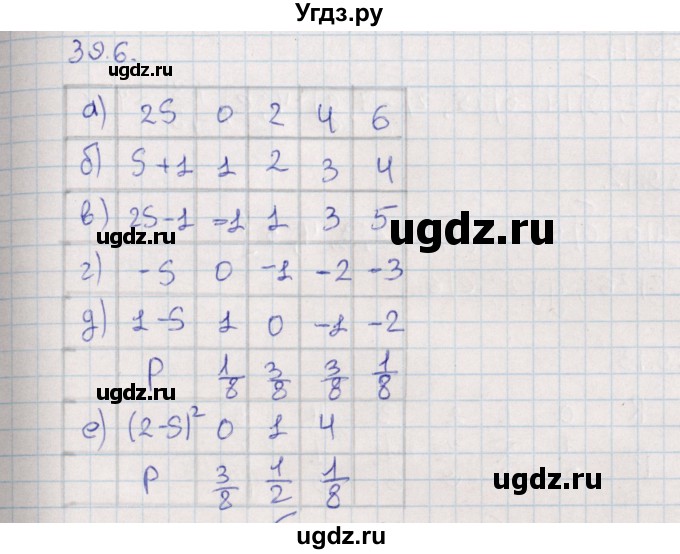 Угдз.ру
39.6.
ugdz.ru
а) 2S 0 2 4 6
б) S+1 1 2 3 4
в) 2S-1 =1 1 3 5
ugdz.ru
ugdz.ru
г) -S 0 -1 -2 -3
д) 1-S 1 0 -1 -2
P 1/8 3/8 3/8 1/8
ugdz.ru
е) (2-S)² 0 1 4
P 3/8 1/2 1/8
ugdz.ru
ugdz.ru